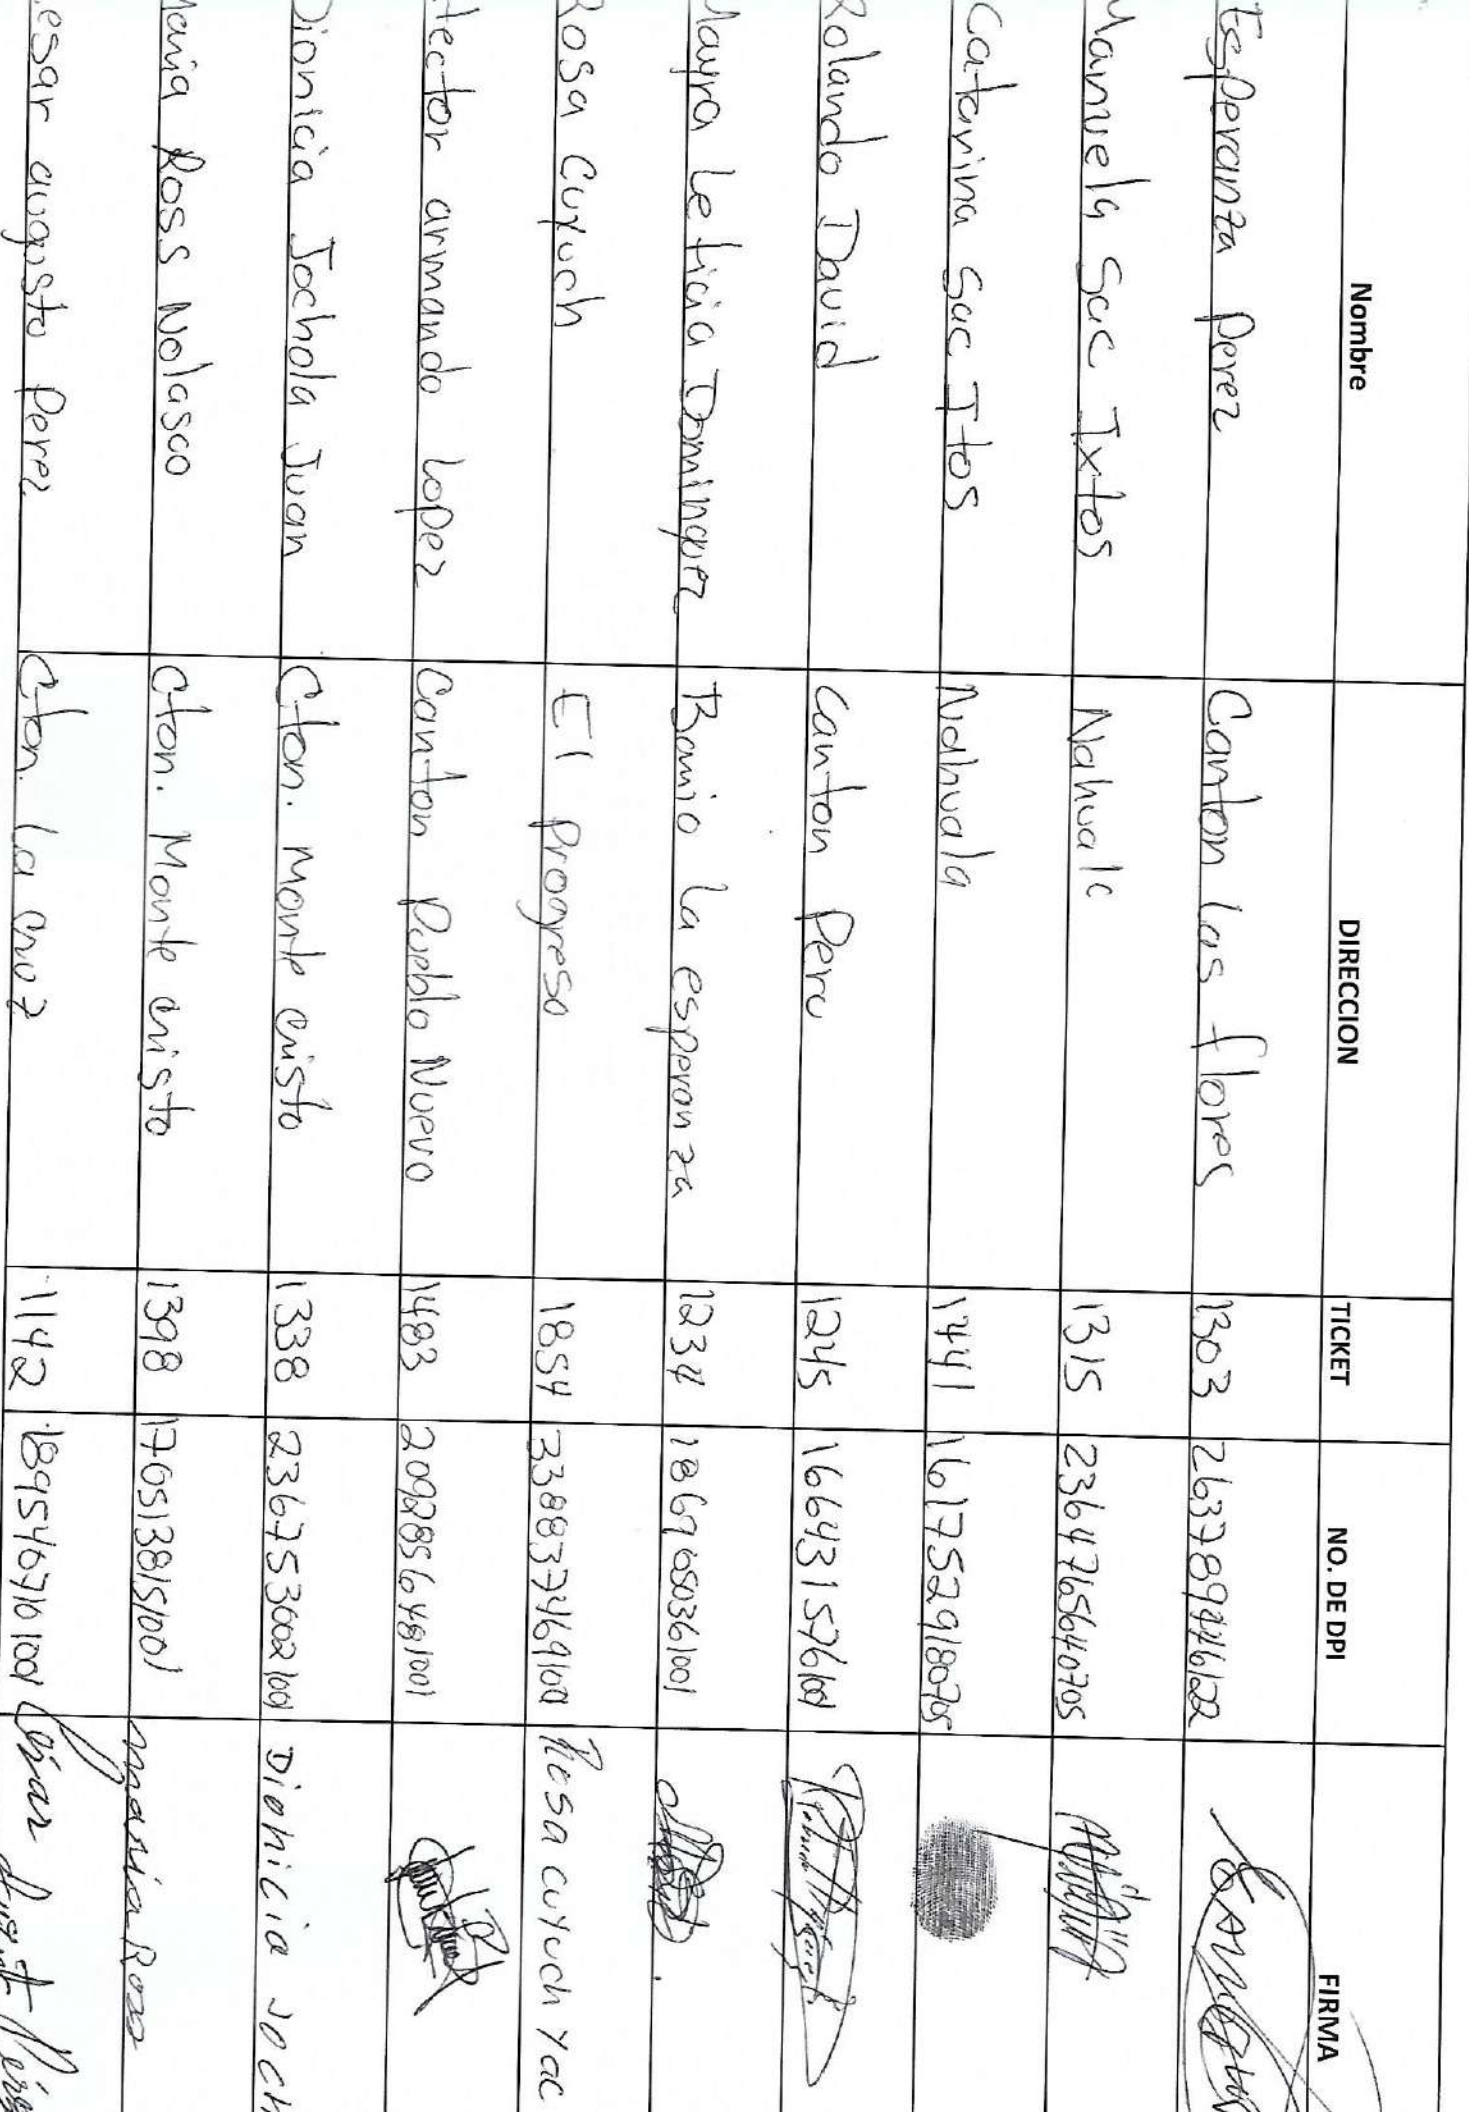 Nombre DIRECCION TICKET NO. DE DPI FIRMA
Esperanza Perez Canton Las flores 1303
Manuela Sac Ixtos Nahuala 1315 2364765640705
Catarina Sac Itos Nahuala 1441 1617529180705
Rolando David Canton Peru 1245 1664315761001
Mayra Leticia Dominguez Barrio La esperanza 1234 1869680361001
Rosa Cuyuch El Progreso 1854 3388374691001 Rosa cuyuch Yac
Hector armando Lopez Canton Pueblo Nuevo 1483 2092856481001
Dionicia Jochola Juan Cton. Monte cristo 1338 2367530021001 Dionicia Joch
Maria Ross Nolasco Cton. Monte cristo 1398 1705138151001 maria Ross
esar augusto Perez Cton. La cruz 1142